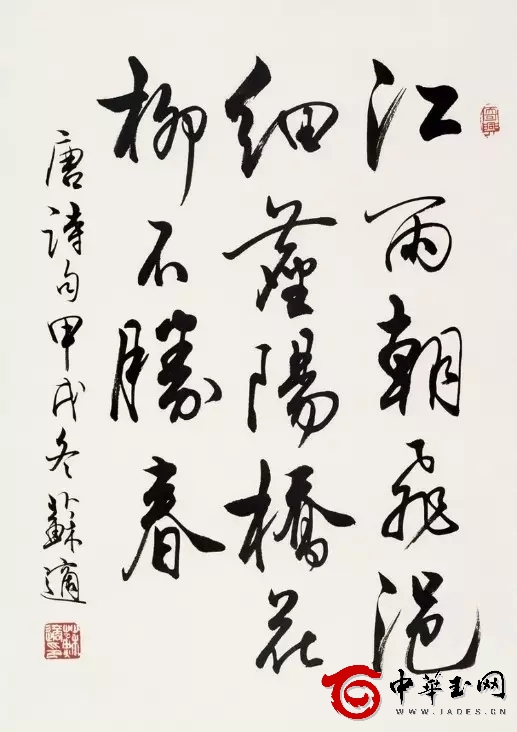 江雨朝飛浥
細塵陽橋花
柳不勝春
唐詩句甲戌冬蘇適
中華玉网
WWW.JADES.CN